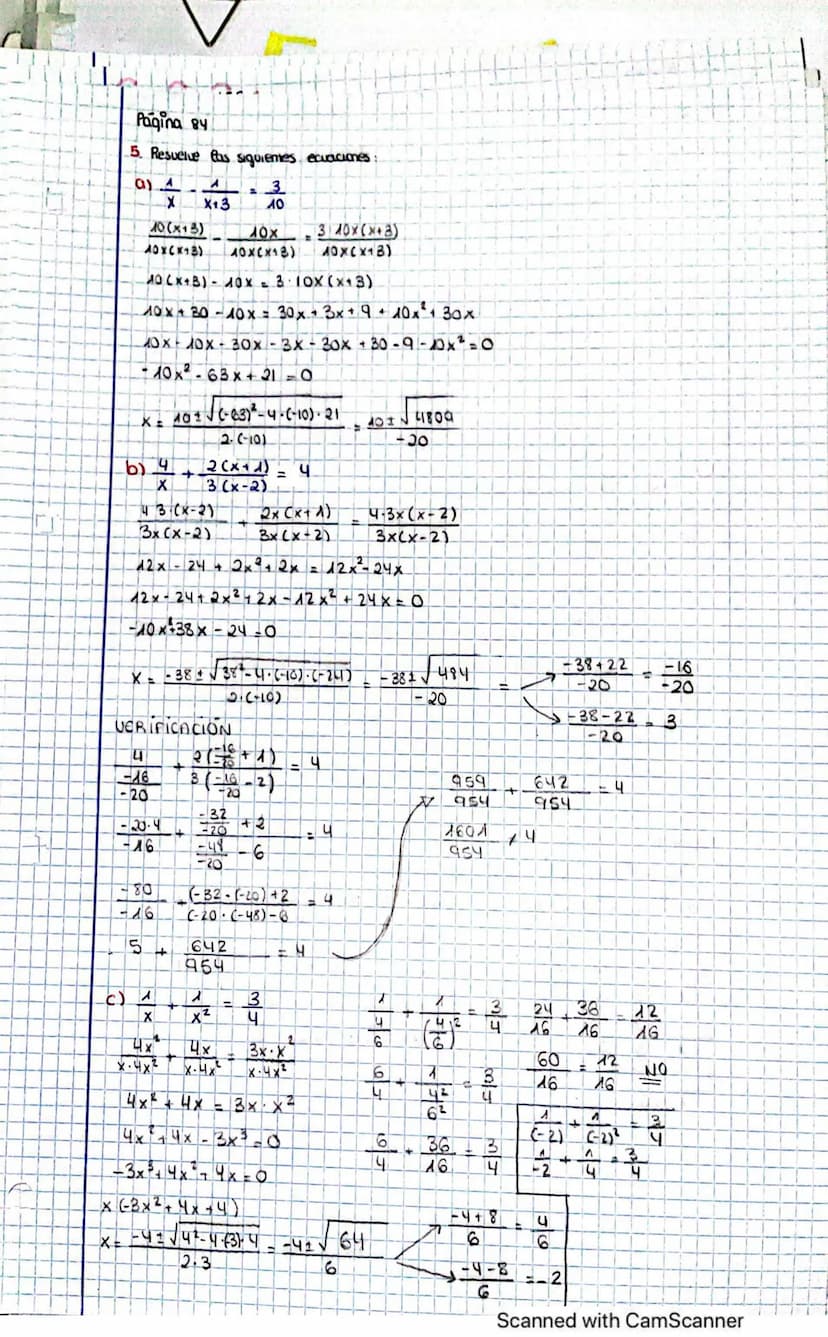 Página 84
5. Resuelve las siguientes ecuaciones:
a) 1/x - 1/(x+3) = 3/10
10(x+3)/10x(x+3) - 10x/10x(x+3) = 3·10x(x+3)/10x(x+3)
10(x+3) - 10x = 3·10x(x+3)
10x + 30 - 10x = 30x + 3x + 9 + 10x² + 30x
10x - 10x - 30x - 3x - 30x + 30 - 9 - 10x² = 0
-10x² - 63x + 21 = 0
x = (10 ± √((-63)² - 4·(-10)·21))/(2·(-10)) = (10 ± √4809)/-20
b) 4/x + 2(x+1)/3(x-2) = 4
4 3·(x-2)/3x(x-2) + 2x(x+1)/3x(x-2) = 4·3x(x-2)/3x(x-2)
12x - 24 + 2x² + 2x = 12x² - 24x
12x - 24 + 2x² + 2x - 12x² + 24x = 0
-10x² + 38x - 24 = 0
x = (-38 ± √(38² - 4·(-10)·(-24)))/(2·(-10)) = (-38 ± √484)/-20 = (-38+22)/-20 = -16/-20
(-38-22)/-20 = 3
VERIFICACIÓN
4/(-16/-20) + 2(-16/-20 + 1)/3(-16/-20 - 2) = 4
-20·4/-16 + (-32/-20 + 2)/(-48/-20 - 6) = 4
-80/-16 + (-32·(-20)+2)/(-20·(-48)-6) = 4
5 + 642/954 = 4
959/954 + 642/954 = 4
1601/954 ≠ 4
c) 1/x + 1/x² = 3/4
4x²/x·4x² + 4x/x·4x² = 3x·x²/x·4x²
4x² + 4x = 3x·x²
4x² + 4x - 3x³ = 0
-3x³ + 4x² + 4x = 0
x(-3x² + 4x + 4)
x = (-4 ± √(4² - 4·(-3)·4))/(2·3) = (-4 ± √64)/6
(-4+8)/6 = 4/6
(-4-8)/6 = -2
1/(4/6) + 1/(4/6)² = 3/4
6/4 + 1/(4²/6²) = 3/4
6/4 + 36/16 = 3/4
24/16 + 36/16 = 12/16
60/16 = 12/16 NO
1/(-2) + 1/(-2)² = 3/4
1/-2 + 1/4 = 3/4
Scanned with CamScanner